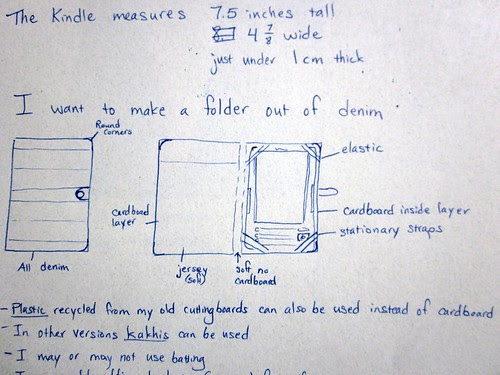 The Kindle measures 7.5 inches tall
4 7/8 wide
just under 1 cm thick
I want to make a folder out of denim
Round corners
elastic
Cardboard layer
Cardboard inside layer
stationary straps
All denim
jersey (soft)
soft no cardboard
- Plastic recycled from my old cuttingboards can also be used instead of cardboard
- In other versions kakhis can be used
- I may or may not use batting